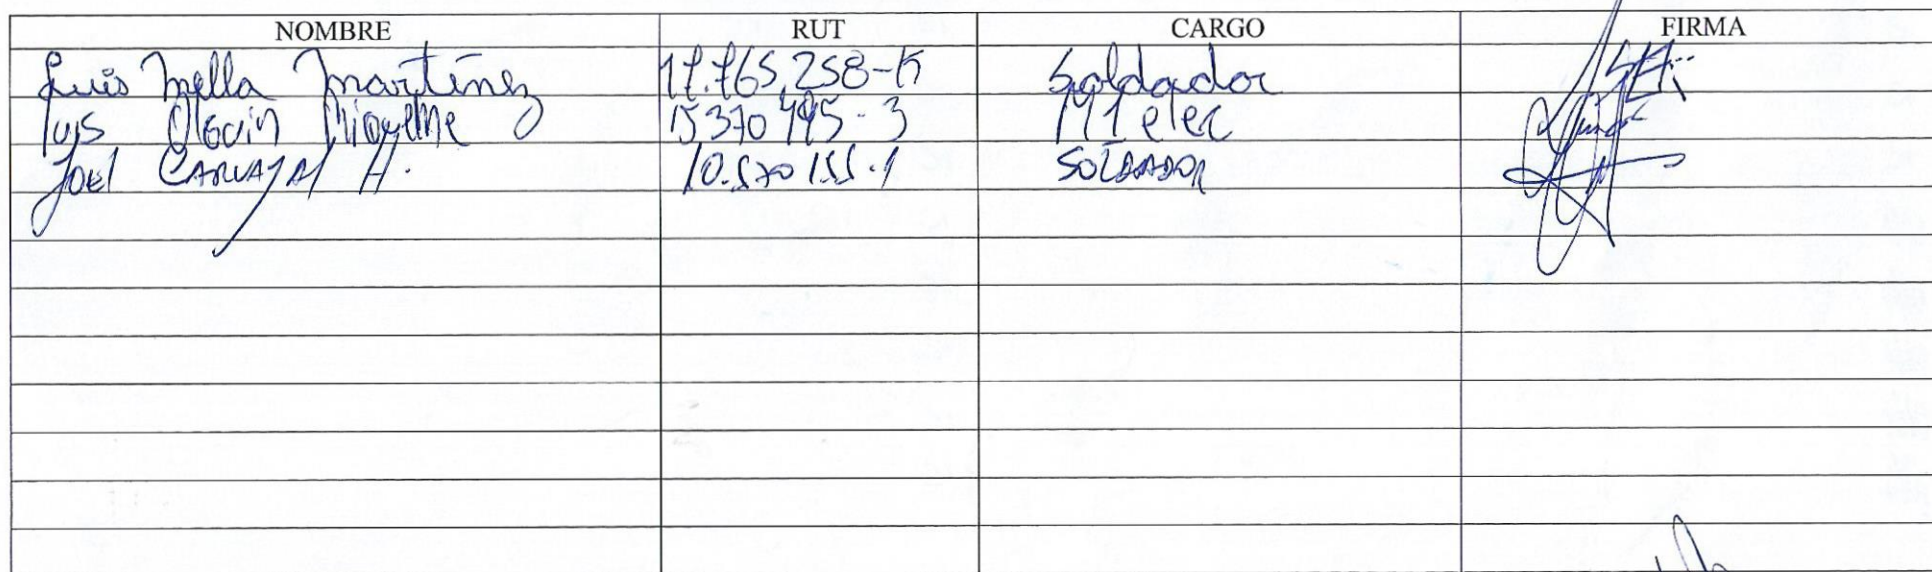 NOMBRE RUT CARGO FIRMA
Luis Mella Martínez 17.765.258-K Soldador
Luis Olguin Riquelme 15370495-3 M1 elec
Joel CARVAJAL H. 10.570155-1 SOLDADOR